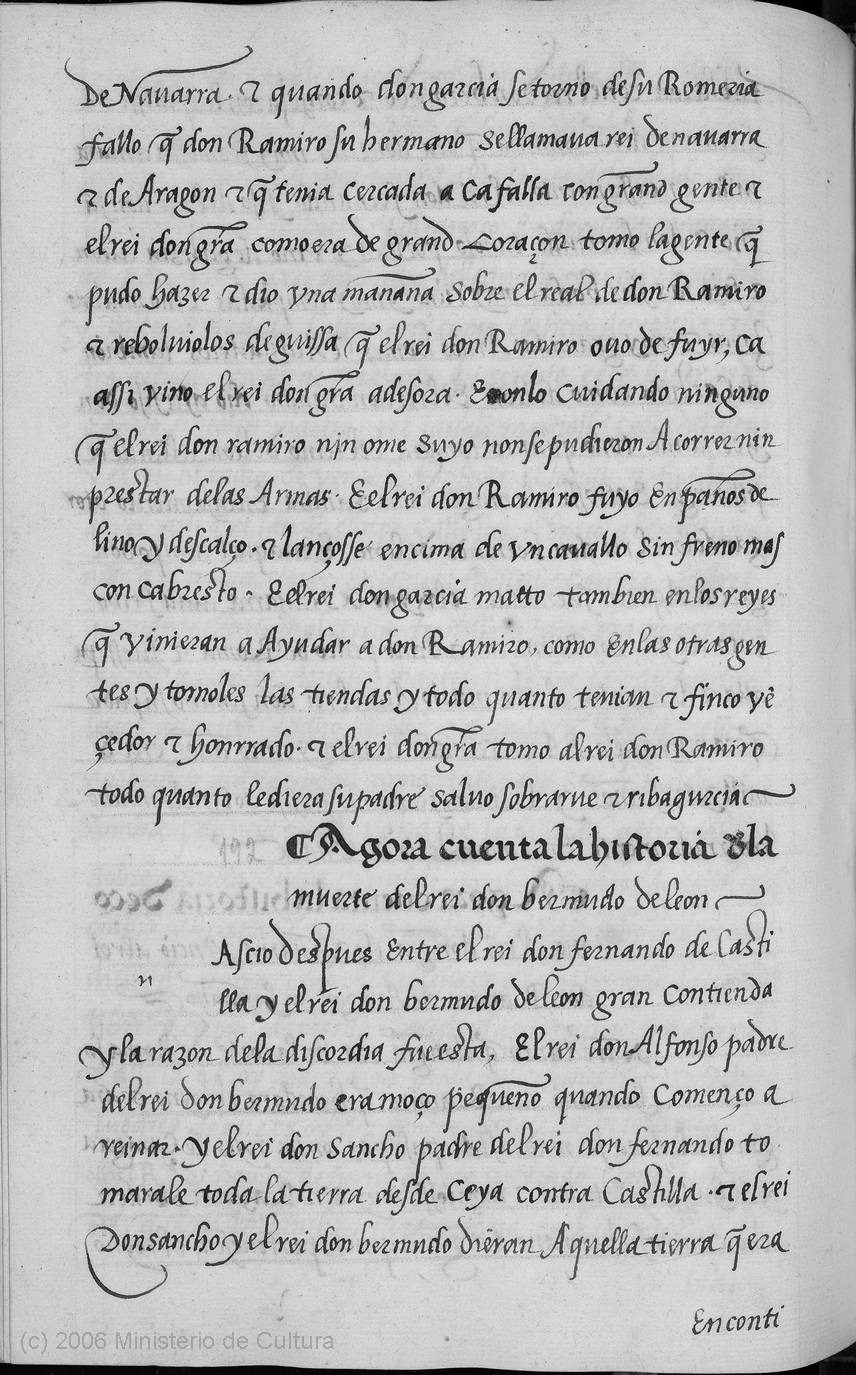 De Navarra. & quando don garcia se torno de su Romeria
fallo q̃ don Ramiro su hermano se llamava rei de navarra
& de Aragon & q̃ tenia cercada a Cafalla con grand gente &
el rei don gr̃a como era de grand Coraçon tomo la gente q̃
pudo hazer & dio vna mañana sobre el real de don Ramiro
& rebolviolos de guissa q̃ el rei don Ramiro ovo de fuyr, Ca
assi vino el rei don gr̃a a desora. E onlo cuidando ninguno
q̃ el rei don ramiro nin ome suyo non se pudieron Acorrer nin
prestar de las Armas. E el rei don Ramiro fuyo En paños de
lino y descalço. & lançosse encima de vn cavallo sin freno mas
con cabresto. E el rei don garcia matto tambien en los reyes
q̃ vinieran a Ayudar a don Ramiro, como En las otras gen
tes y tomoles las tiendas y todo quanto tenian & finco vẽ
çedor & honrrado. & el rei don gr̃a tomo al rei don Ramiro
todo quanto le diera su padre salvo sobrarve & ribagurcia
192 ¶ Agora cuenta la historia dla
muerte del rei don bermudo de leon
n Ascio despues Entre el rei don fernando de Casti
lla y el rei don bermudo de leon gran Contienda
y la razon de la discordia fue esta, El rei don Alfonso padre
del rei don bermudo era moço pequeño quando Començo a
reinar. y el rei don Sancho padre del rei don fernando to
marale toda la tierra desde Ceya contra Castilla. & el rei
Don sancho y el rei don bermudo dieran Aquella tierra q̃ era
En conti
(c) 2006 Ministerio de Cultura